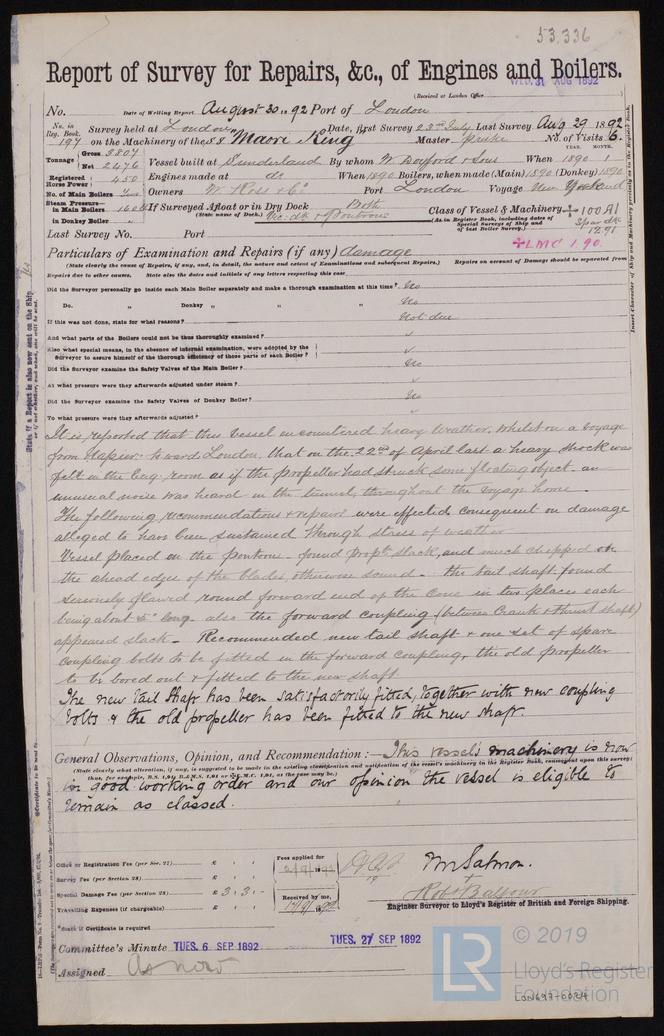 53,336
Report of Survey for Repairs, &c., of Engines and Boilers.
(Received at London Office WED. 31 AUG 1892
No. Date of Writing Report August 30 1892 Port of London
No. in Reg. Book. 197 Survey held at London Date, first Survey 23rd July Last Survey Aug 29 1892
on the Machinery of the SS "Maori King" Master No. of Visits 6.
Tonnage Gross 3807 Net 2476 Vessel built at Sunderland By whom W. Doxford & Sons When 1890 YEAR. 1 MONTH.
Registered Horse Power 450 Engines made at do When 1890 Boilers, when made (Main) 1890 (Donkey) 1890
No. of Main Boilers Owners W. Ross & Co Port London Voyage New Zealand
Steam Pressure— in Main Boilers 160 lb in Donkey Boiler If Surveyed Afloat or in Dry Dock Both
(State name of Dock.) Vic. dk & Pontoons Class of Vessel & Machinery ✠ 100 A1
(As in Register Book, including dates of Special Surveys of Ship and of last Boiler Survey.) Spar dk 12.91
Last Survey No. Port ✠ LMC 1.90.
Particulars of Examination and Repairs (if any) damage
(State clearly the cause of Repairs, if any, and, in detail, the nature and extent of Examinations and subsequent Repairs.) Repairs on account of Damage should be separated from
Repairs due to other causes. State also the dates and initials of any letters respecting this case
Did the Surveyor personally go inside each Main Boiler separately and make a thorough examination at this time? No
Do. " Donkey " " " No
If this was not done, state for what reasons? Not due
And what parts of the Boilers could not be thoroughly examined? ✓
Also what special means, in the absence of internal examination, were adopted by the Surveyor to assure himself of the thorough efficiency of those parts of each Boiler? ✓
Did the Surveyor examine the Safety Valves of the Main Boiler? No
At what pressure were they afterwards adjusted under steam? ✓
Did the Surveyor examine the Safety Valves of Donkey Boiler? No
To what pressure were they afterwards adjusted? "
It is reported that this vessel encountered heavy weather, whilst on a voyage
from Napier toward London, that on the 22nd of April last a heavy shock was
felt in the Eng. room as if the propeller had struck some floating object. an
unusual noise was heard in the tunnel, throughout the voyage home.
The following recommendations & repairs were effected consequent on damage
alleged to have been sustained through stress of weather
Vessel placed on the pontoon - found propr slack, and much chipped on
the ahead edges of the blades, otherwise sound. the tail shaft found
seriously flawed round forward end of the Cone in two places each
being about 5" long. also the forward coupling (between Crank & thrust shaft)
appeared slack — Recommended new tail shaft & one set of spare
coupling bolts to be fitted in the forward coupling, the old propeller
to be bored out & fitted to the new shaft
The new tail shaft has been satisfactorily fitted, together with new coupling
bolts & the old propeller has been fitted to the new shaft.
General Observations, Opinion, and Recommendation:— This vessel's machinery is now
(State clearly what alteration, if any, is suggested to be made in the existing classification and notification of the vessel's machinery in the Register Book, consequent upon this survey:
thus, for example, B.S. 1,91 B.&M.S. 1,91 or ✠L.M.C. 1,91, as the case may be.)
in good working order and our opinion the vessel is eligible to
remain as classed.
Office or Registration Fee (per Sec. 27) £ : :
Survey Fee (per Section 28) £ : :
Special Damage Fee (per Section 28) £ 3 : 3 : -
Travelling Expenses (if chargeable) £ : :
Fees applied for 2/9/1892
Received by me, 1892
Wm Salmon.
Robt Balfour
Engineer Surveyor to Lloyd's Register of British and Foreign Shipping.
*State if Certificate is required
Committee's Minute TUES. 6 SEP 1892 TUES. 27 SEP 1892
Assigned As now
State if a Report is also now sent on the Ship
Insert Character of Ship and Machinery precisely as in the Register Book.
© 2019
LR Lloyd's Register Foundation
LON693-0024